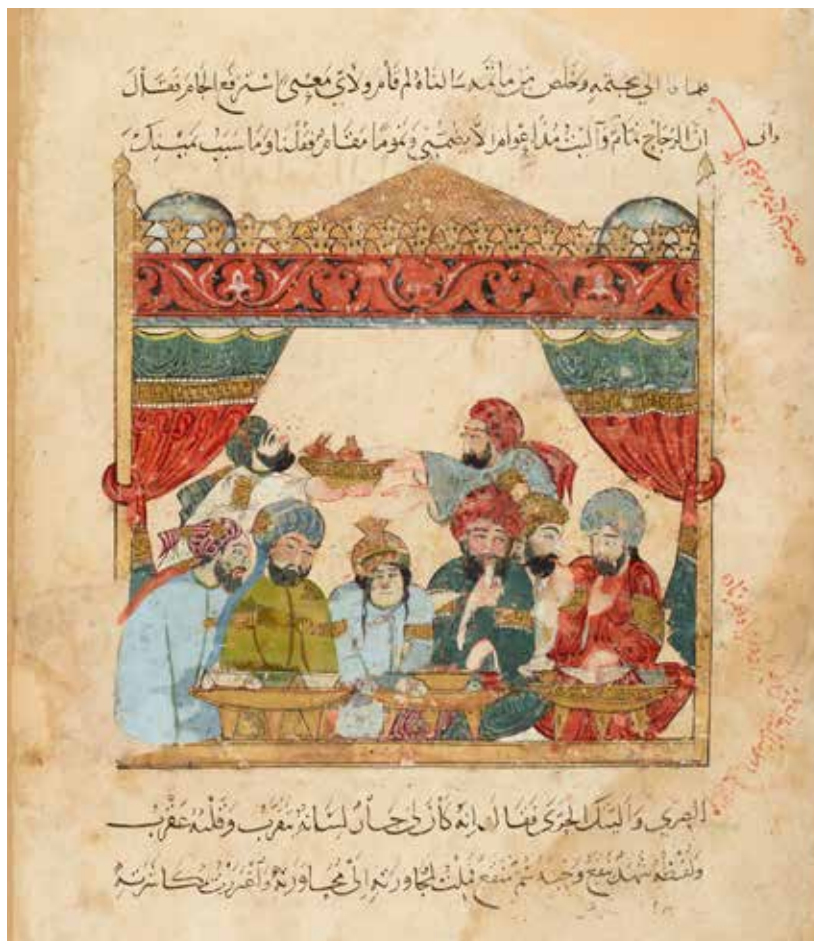 فلما فا الى مجثمه وخلص من مأثمه سالناه لم قام ولأي معنى استرفع الجام فقال
وانى
ان الزجاج نمام وآليت مذ اعوام الا يضمني ونموما مقام فقلنا وما سبب يمينك
الصرى وأليتك الحرى فقال انه كان لي جار لسانه يتقرب وقلبه عقرب
ولفظه شهد ينقع وخبه سم منقع فملت لمجاورته الى محاورته واغتررت بمكاشرته